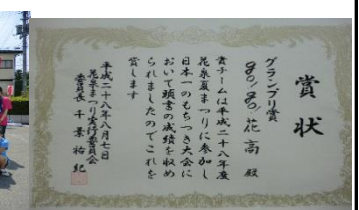 賞状
グランプリ賞
go!go!花高 殿
貴チームは平成二十八年度
花泉夏まつりに参加し
日本一のもちつき大会に
おいて頭書の成績を収め
られましたのでこれを
賞します
平成二十八年八月七日
花泉まつり実行委員会
委員長 千葉祐紀